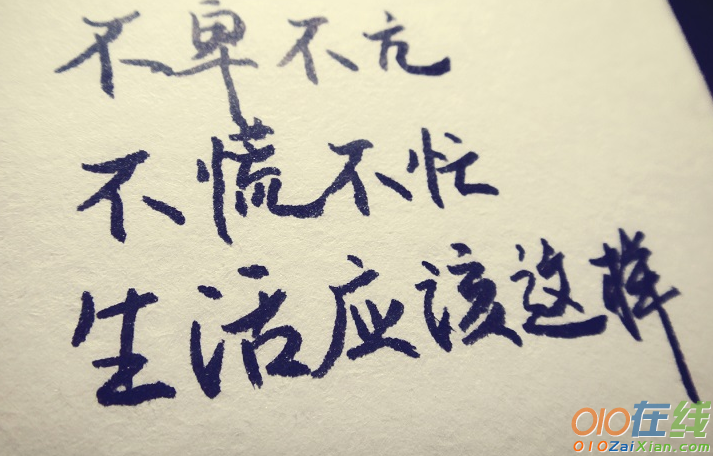 不卑不亢
不慌不忙
生活应该这样
010在线
010ZaiXian.com